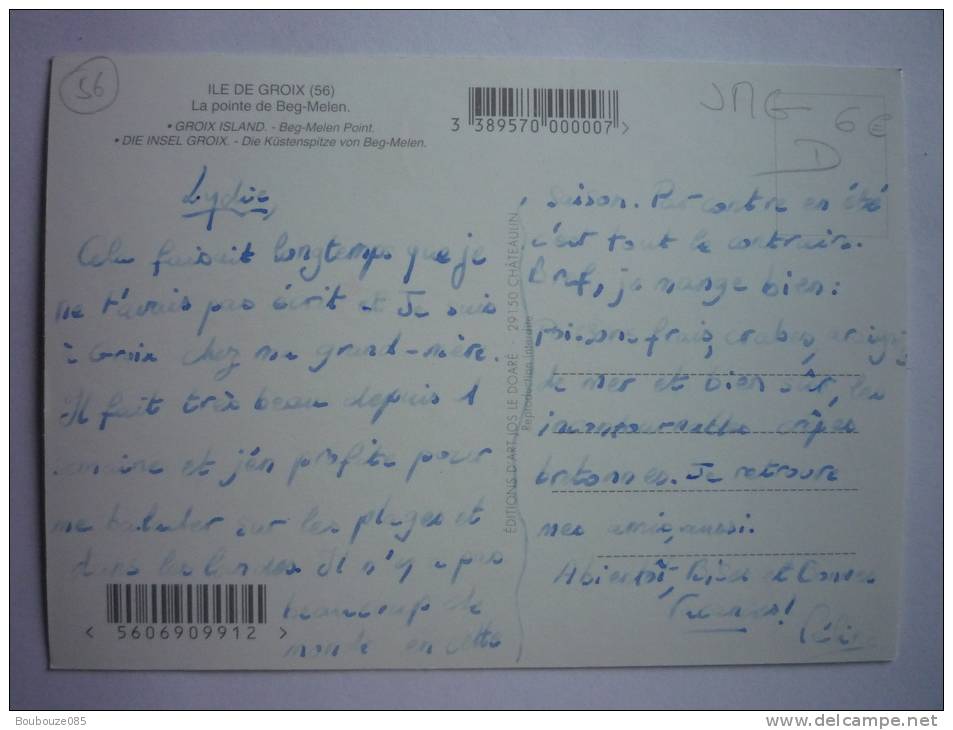 56
ILE DE GROIX (56)
La pointe de Beg-Melen.
• GROIX ISLAND. - Beg-Melen Point.
• DIE INSEL GROIX. - Die Küstenspitze von Beg-Melen.
3 389570 000007 >
JMG 6 €
D
Lydie,
Cela faisait longtemps que je
ne t'avais pas écrit et Je suis
à Groix chez ma grand-mère.
Il fait très beau depuis 1
semaine et j'en profite pour
me balader sur les plages et
dans les landes. Il n'y a pas
beaucoup de
monde en cette
< 5606909912 >
ÉDITIONS D'ART JOS LE DOARÉ - 29150 CHÂTEAULIN
Reproduction interdite
saison. Par contre en été
c'est tout le contraire.
Bref, je mange bien:
Poissons frais, crabes, araignées
de mer et bien sûr, les
incontournables crêpes
bretonnes. Je retrouve
mes amis, aussi.
A bientôt,
Boubouze085
www.delcampe.net